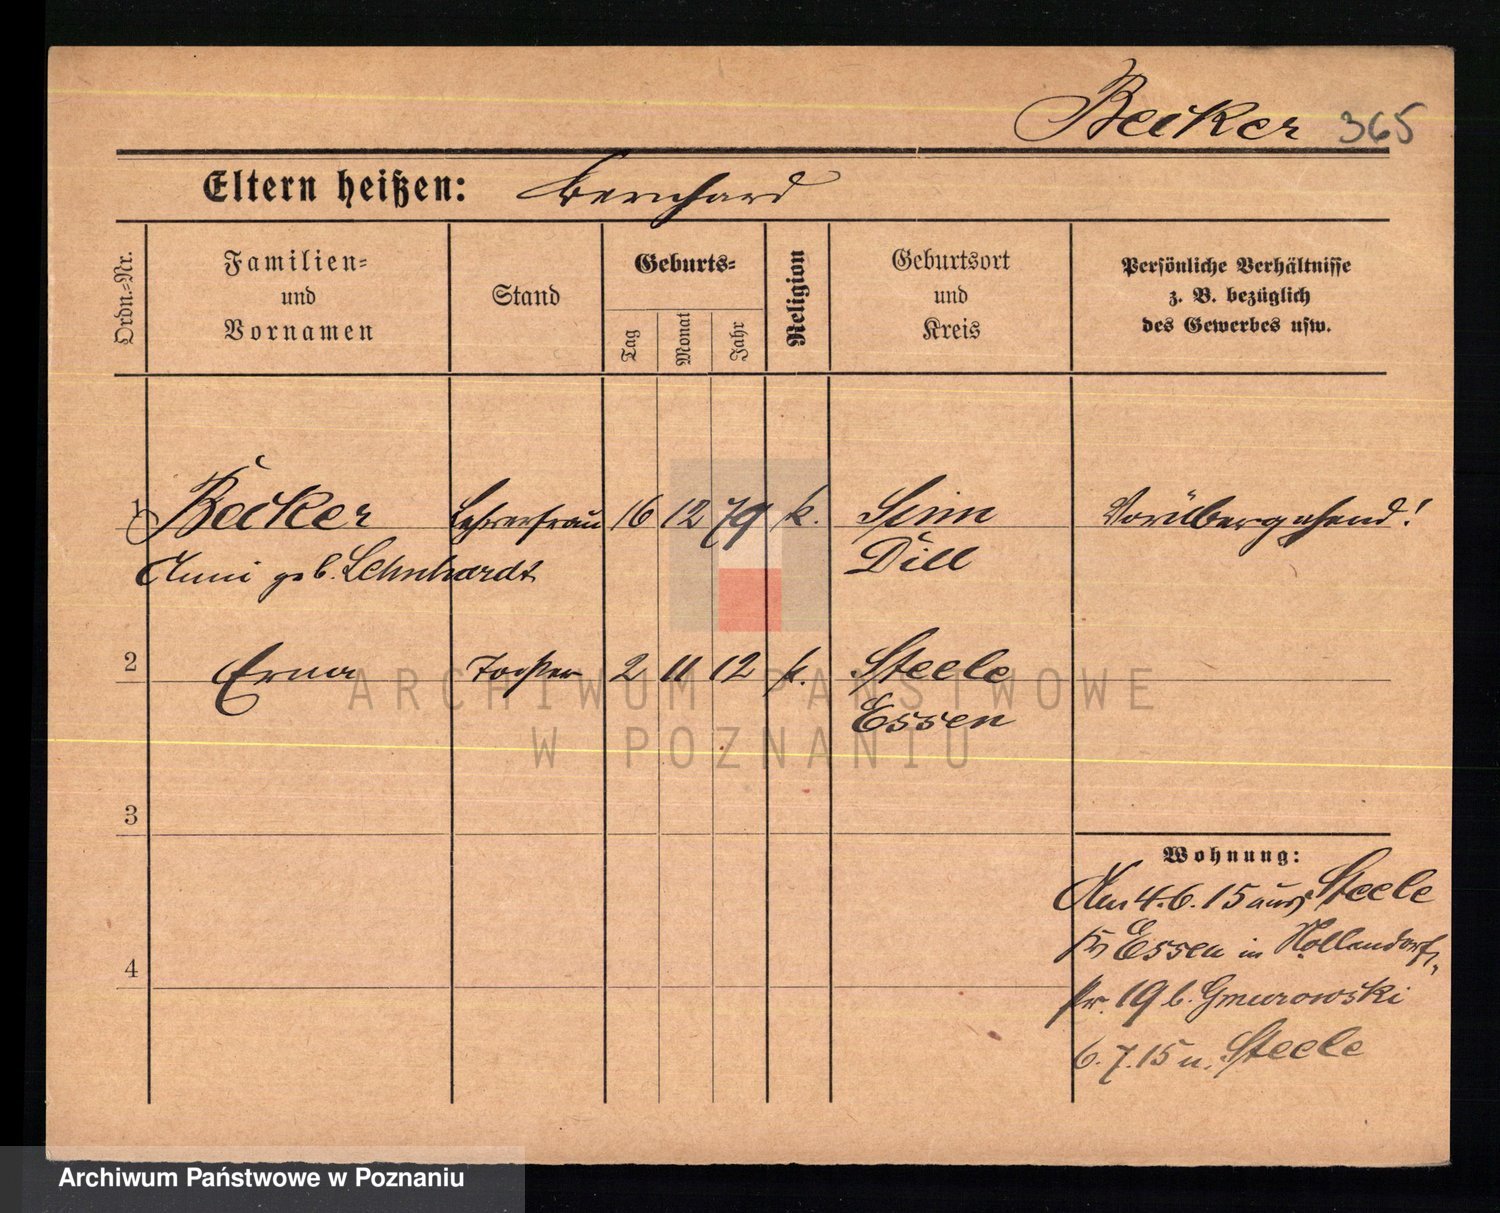 Becker 365
Eltern heißen: Bernhard
Ordn.-Nr.
Familien-
und
Vornamen
Stand
Geburts-
Tag
Monat
Jahr
Religion
Geburtsort
und
Kreis
Persönliche Verhältnisse
z. B. bezüglich
des Gewerbes usw.
1 Becker Lehrerfrau 16 12 79 k. Sinn Vorübergehend!
Anni geb. Lehnhardt Dill
2 Erna Tochter 2 11 12 k. Steele
Essen
3
4
Wohnung:
Am 4.6.15 aus Steele
Kr Essen in
Nr. 19 b. Gmurowski
6.7.15 n. Steele
ARCHIWUM PAŃSTWOWE
W POZNANIU
Archiwum Państwowe w Poznaniu